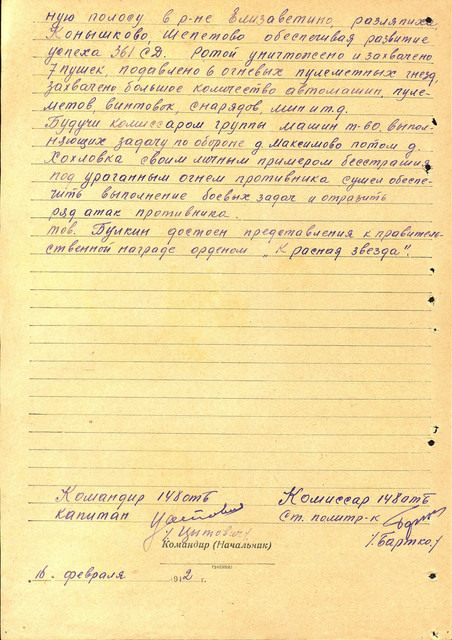 ную полосу в р-не Елизаветино, разляпиха,
Конышково, Шепетово обеспечивая развитие
успеха 361 СД. Ротой уничтожено и захвачено
7 пушек, подавлено 6 огневых пулеметных гнезд,
захвачено большое количество автомашин, пуле-
метов, винтовок, снарядов, мин и т.д.
Будучи комиссаром группы машин Т-60, выпол-
няющих задачу по обороне д. Максимово потом д.
Хохловка своим личным примером бесстрашия
под ураганным огнем противника сумел обеспе-
чить выполнение боевых задач и отразить
ряд атак противника.
тов. Булкин достоен представления к правитель-
ственной награде орденом „Красная звезда".
Командир 148 отб Комиссар 148 отб
капитан Ст. политр-к
/Цытович/ /Бартко./
Командир (Начальник)
16. февраля 1942 г.